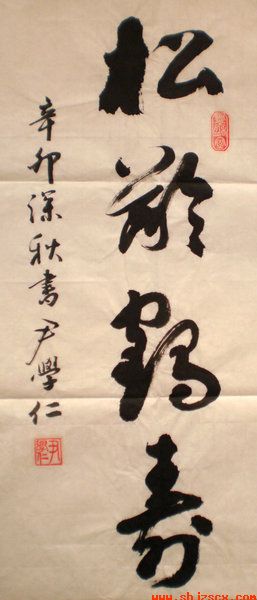 松龄鹤寿
辛卯深秋書尹學仁
www.shjzscx.com